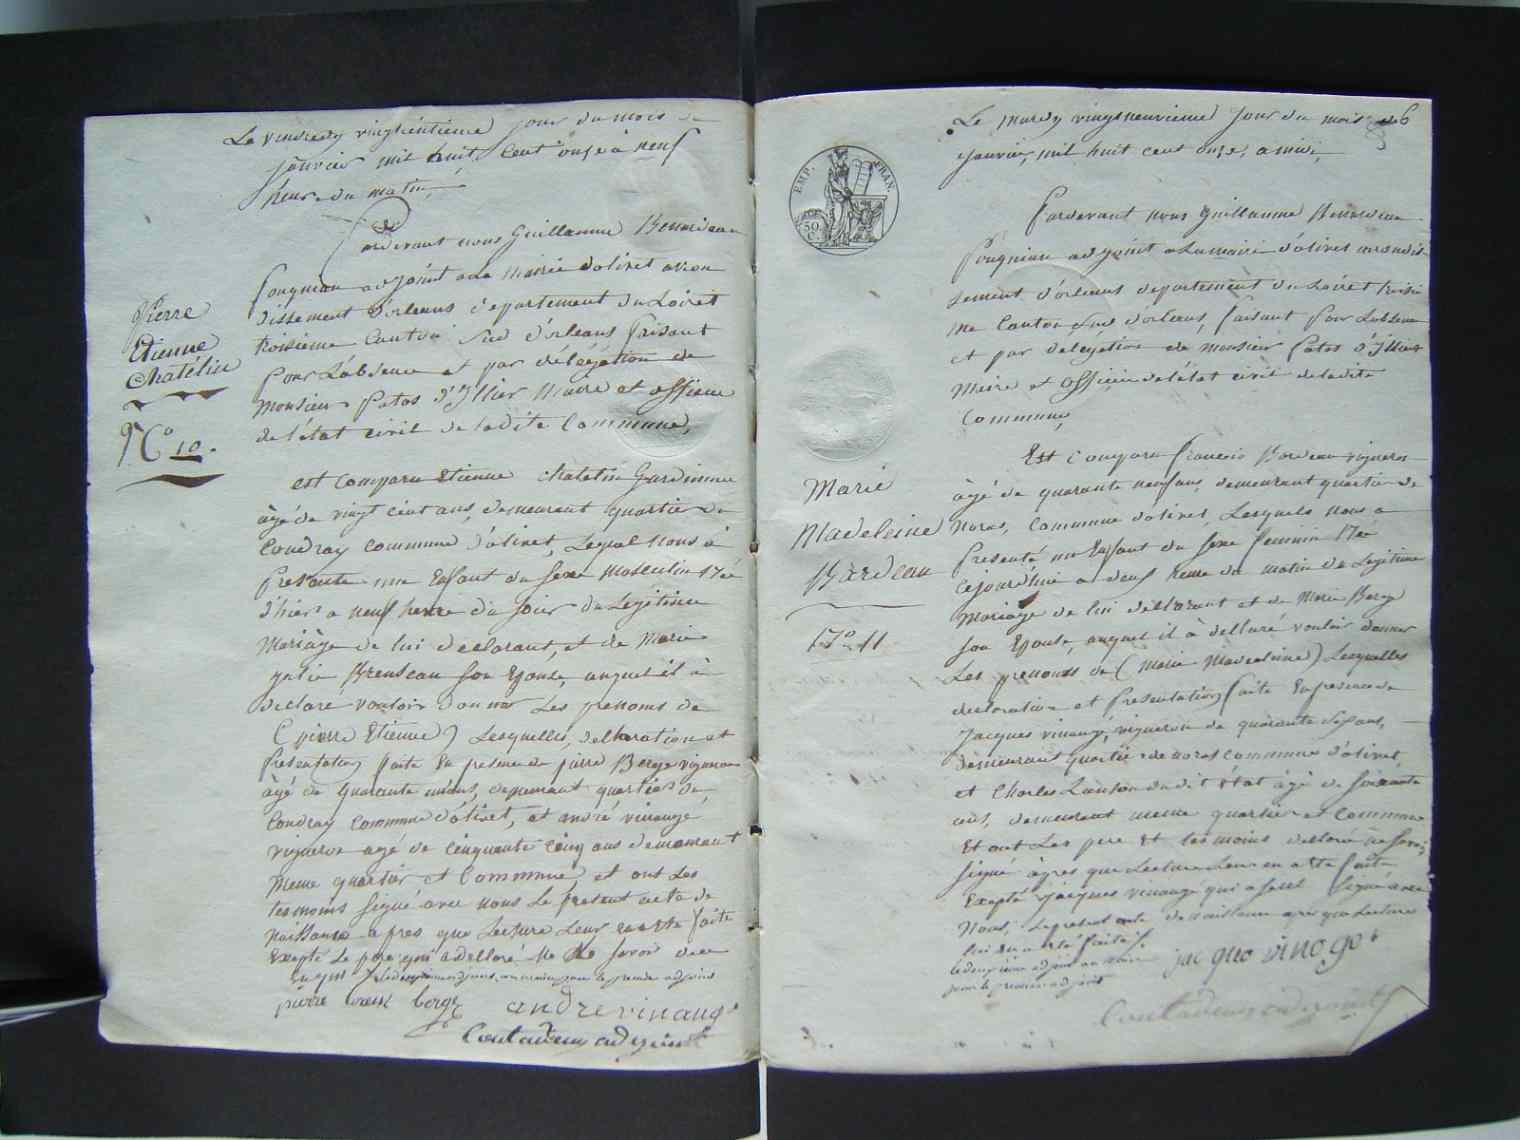 Le vendredy vingtcintieme jour du mois de
janvier mil huit cent onze à neuf
heure du matin
Pardevant nous Guillaume Benardeau
adjoint a la Mairie d'olivet aron
dissement d'orleans departement du Loiret
troisieme Canton Sud d'orleans faisant
pour L'absence et par délégation de
Monsieur Patas d'Illier Maire et officier
de l'état civil de ladite Commune,
Pierre
Etienne
Chatélin
No 10.
est comparu Etienne Chatelin Jardinnier
âgé de vingt cint ans, demeurant quartier du
Coudray commune d'olivet, Lequel Nous à
Presenté un Enfant du sexe Masculin Née
d'hier a neuf heure du soir du Legitime
Mariage de lui declarant, et de Marie
son Epouse, auquel il à
declaré vouloir donner Les prenoms de
(pierre Etienne) Lesquelles declaration et
Presentation faite En presence de pierre Berge vigneron
âgé de quarante ans, demeurant quartier du
Coudray commune d'olivet, et andré vinauge
vigneron agé de cinquante cinq ans demeurant
meme quartier et Commune, et ont Les
temoins signé avec nous Le present acte de
Naissance apres que Lecture Leur en a Eté faite
Excepté Le pere qui a declaré Ne savoir de ce
pierre berge andre vinauge
Coutadeux adjoint
6
Le mardy vingtneuvieme jour du mois de
janvier, mil huit cent onze, a midi,
EMP. FRAN.
50
C.
Pardevant nous Guillaume Benardeau
adjoint a La mairie d'olivet arrondis
sement d'orleans departement du Loiret troisié
me Canton Sud d'orleans, faisant pour L'absence
et par delegation de monsieur Patas d'Illier
Maire et officier de l'état civil de ladite
Commune,
Marie
Madeleine
Bardeau
No 11
Est comparu francois Bardeau vigneron
âgé de quarante neuf ans, demeurant quartier de
Noras, Commune d'olivet, Lesquels Nous a
Presenté un Enfant du sexe feminin Née
cejourd'hui a deux heure du matin du Legitime
Mariage de lui déclarant et de Marie Berge
son Epouse, auquel il à declaré vouloir donner
Les prenoms de (Marie Madeleine) Lesquelles
declaration et Presentation faite En presence de
Jacques vinauge, vigneron de quarante ans,
demeurant quartier de noras commune d'olivet,
et Charles Lanson dudit Etat âgé de soixante
ans, demeurant meme quartier et commune
Et ont Les pere Et temoins declaré ne savoir
signé âpres que Lecture Leur en a Eté faite
Excepté Jacques vinauge qui a signé avec
Nous, Le present acte de naissance apres que Lecture
lui en a Eté faite
le deuxieme adjoint au maire
pour le premier adjoint
jacque vinoge
Coutadeux adjoint